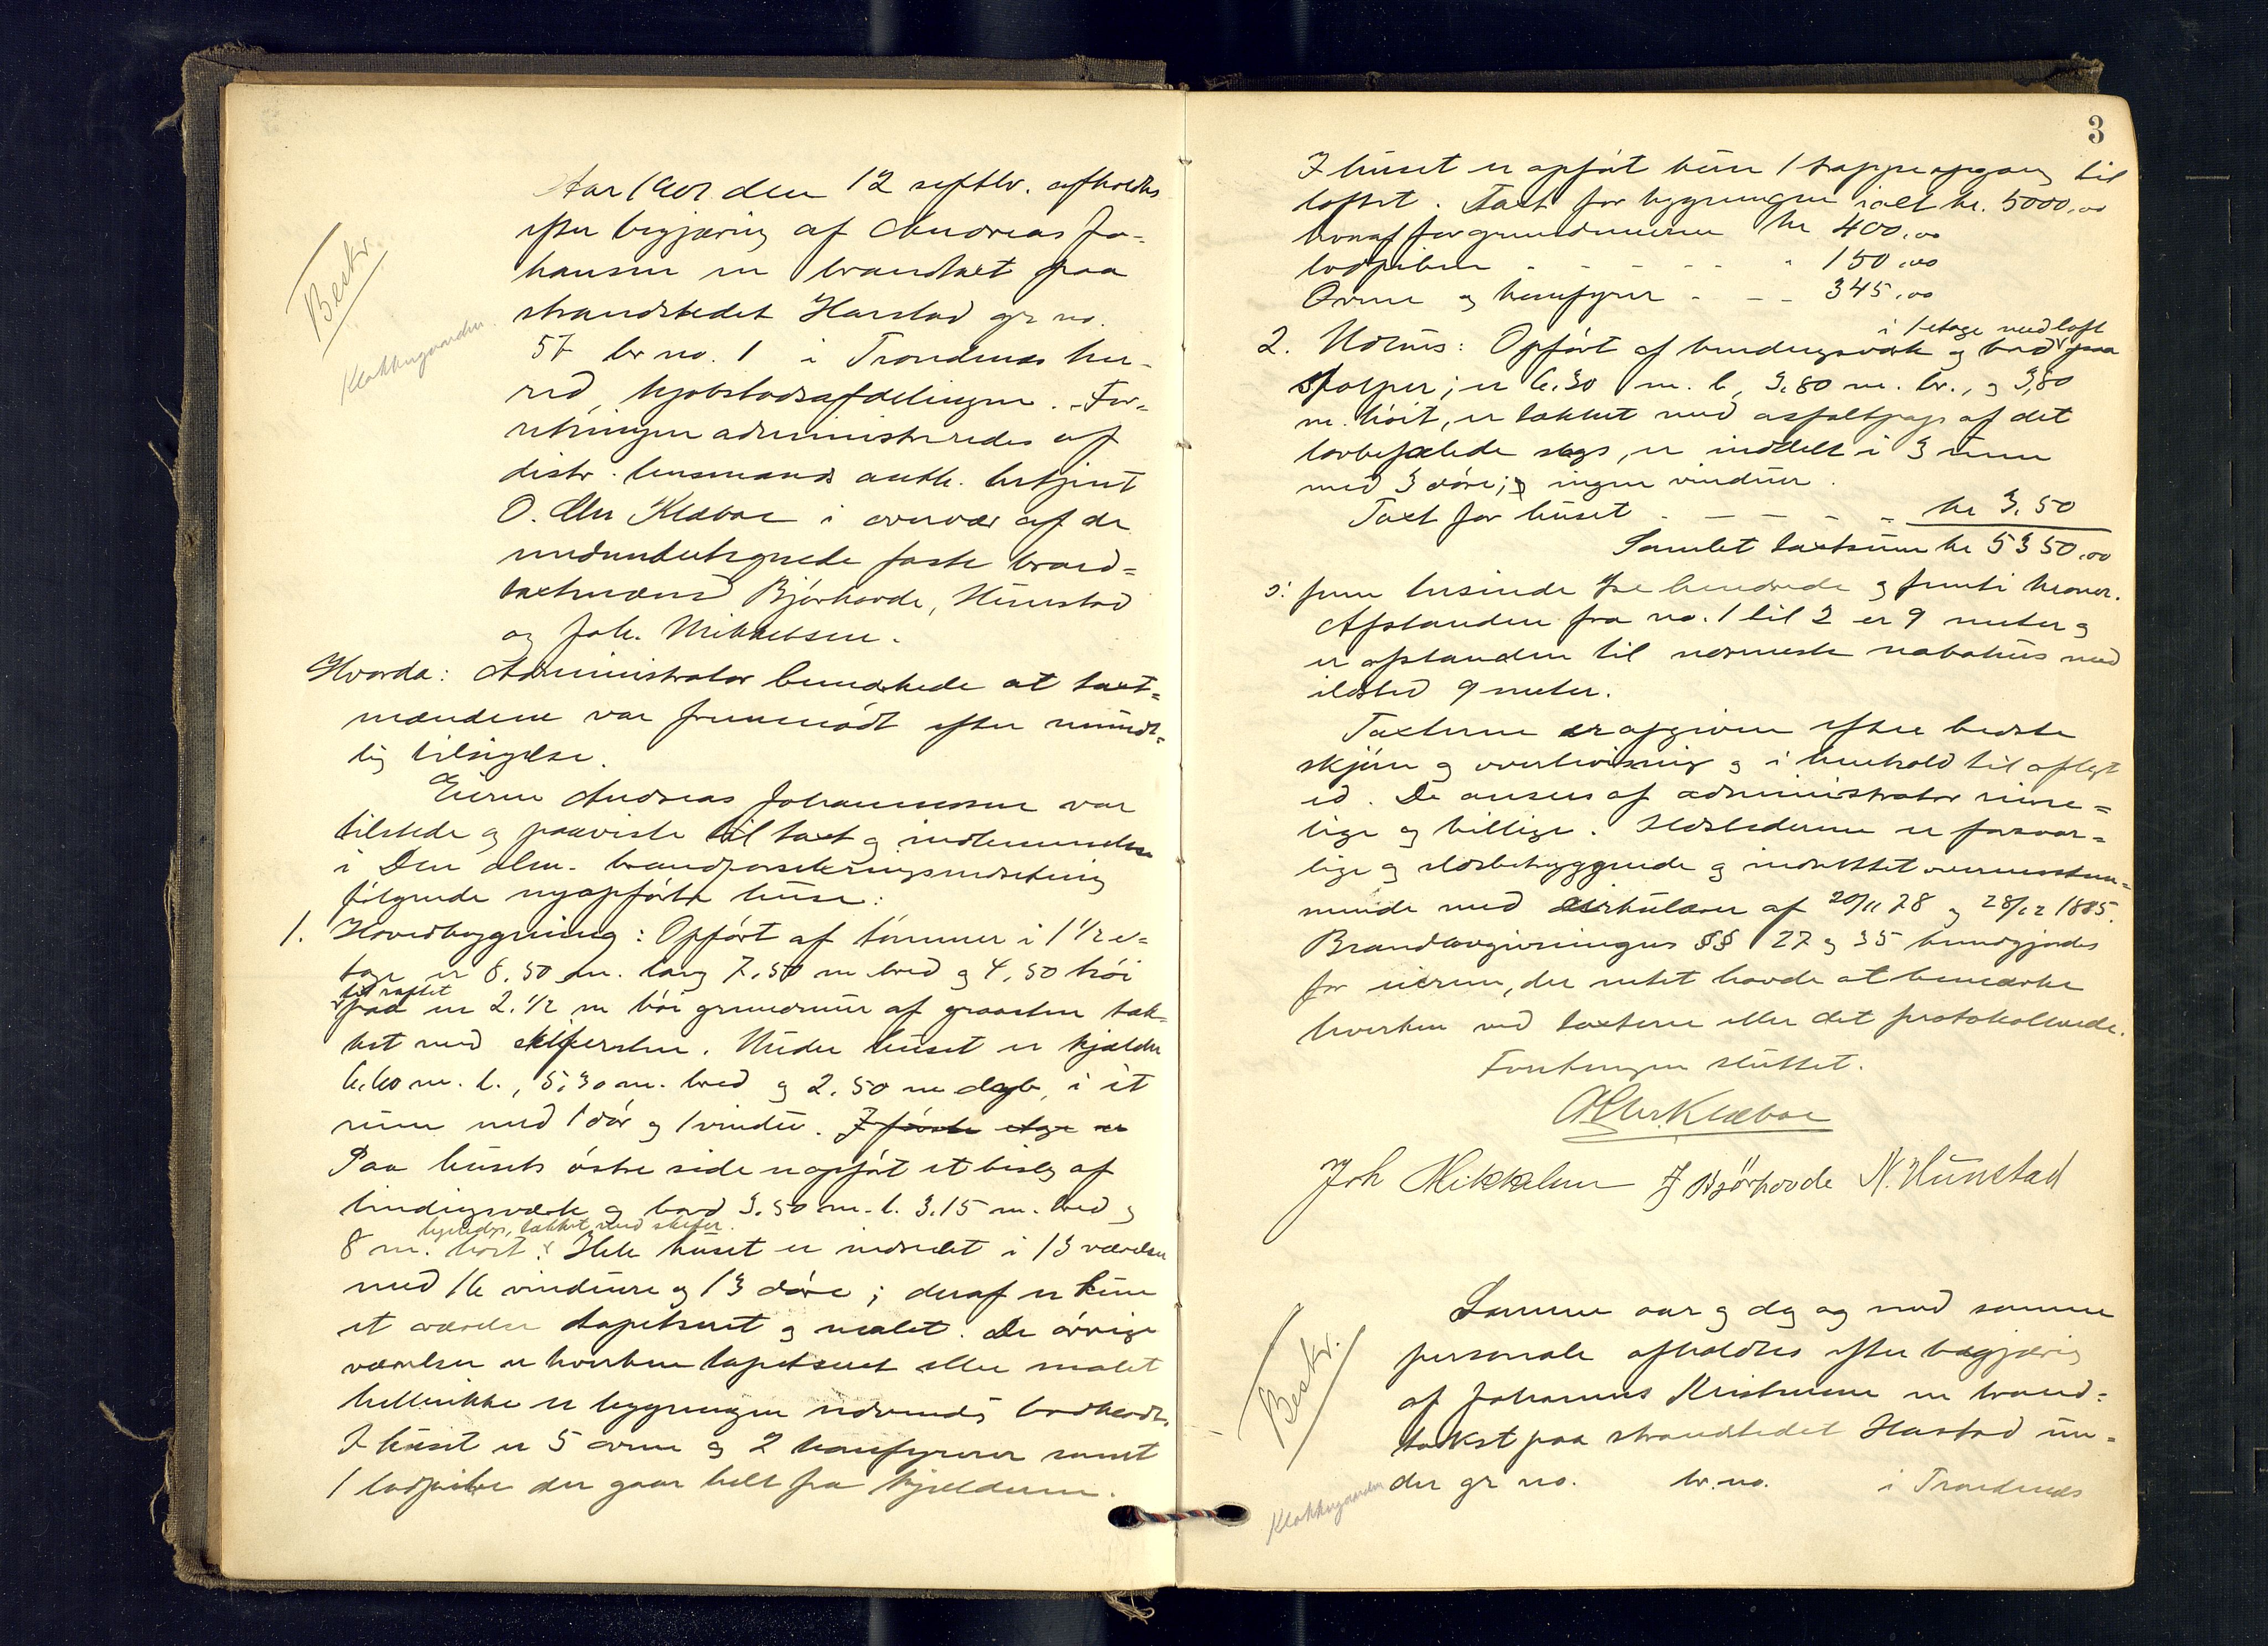 Aar 1901 den 12 septbr. afholdtes
efter begjæring af Andreas Jo-
hansen en brandtaxt paa
strandstedet Harstad gr no.
57 br no. 1 i Trondenes her-
red, kjøbstadsafdelingen. For-
retningen administreredes af
distr. lensmands auth. betjent
O. Chr Klæboe i overvær af de
undertegnede faste brand=
taxtmænd Bjørhovde, Hunstad
og Joh. Mikkelsen.
Bestr.
Klokkergaarden.
Hvorda: Administrator bemærkede at taxt=
mændene var fremmødt efter mundt=
lig tilsigelse.
Eieren Andreas Johannessen var
tilstede og paaviste til taxt og indlemmelse
i Den alm. brandforsikringsindretning
følgende nyopførte huse:
1. Hovedbygning: Opført af tømmer i 1 1/2 e-
tage er 8.50 m. lang 7.50 m bred og 4,50 høi
til raftet
paa en 2.1/2 m høi grundmur af graasten tæk-
ket med skifersten. Under huset er kjælder
6.60 m. l., 5,30 m. bred og 2.50 m dyb, i et
rum med 1 dør og 1 vindu. I første etage er
Paa husets østre side er opført et bislag af
bindingsværk og bord 3.50 m. l. 3.15 m. bred og
tækket med skifer.
8 m. høit. Hele huset er indredet i 13 værelser
med 16 vinduer og 13 døre; deraf er kun
et værelse tapetseret og malet. De øvrige
værelser er hverken tapetseret eller malet
hellerikke er bygningen udvendig bordklædt.
I huset er 5 ovne og 2 komfyrer samt
1 lodpibe der gaar helt fra kjælderen.
3
I huset er opført kun 1 trappeopgang til
loftet. Taxt for bygningen ialt kr. 5000,00
hvoraf for grundmuren kr 400.00
lodpiben - - - - - " 150,00
Ovne og komfyrer - - - 345,00
i 1 etage med loft
2. Udhus: Opført af bindingsværk og bord paa
stolper; er 6.30 m. l, 3.80 m. br., og 3,80
m. høit, er tækket med asfaltpap af det
lovbefalede slags, er inddelt i 3 rum
med 3 døre; ingen vinduer.
Taxt for huset - - - - - kr 3.50
Samlet taxtsum kr 5350,00
ɔ: fem tusinde tre hundrede og femti kroner.
Afstanden fra no. 1 til 2 er 9 meter og
er afstanden til nærmeste nabohus med
ildsted 9 meter.
Taxterne er afgivne efter bedste
skjøn og overbevisning og i henhold til aflagt
ed. De ansees af administrator rime=
lige og billige. Ildstederne er forsvar=
lige og ildsbetryggende og indrettet overensstem=
mende med cirkulærer af 20/11 78 og 28/12 1885.
Brandlovgivningens §§ 27 og 35 kundgjordes
for eieren, der intet havde at bemærke
hverken ved taxterne eller det protokollerede.
Forretningen sluttet.
O Chr. Klæboe
Joh Mikkelsen J Bjørhovde N. Hunstad
Samme aar og dag og med samme
personale afholdtes efter begjæring
af Johannes Kristensen en brand=
takst paa strandstedet Harstad un-
der gr no. br. no. i Trondenes
Bestr.
Klokkergaarden